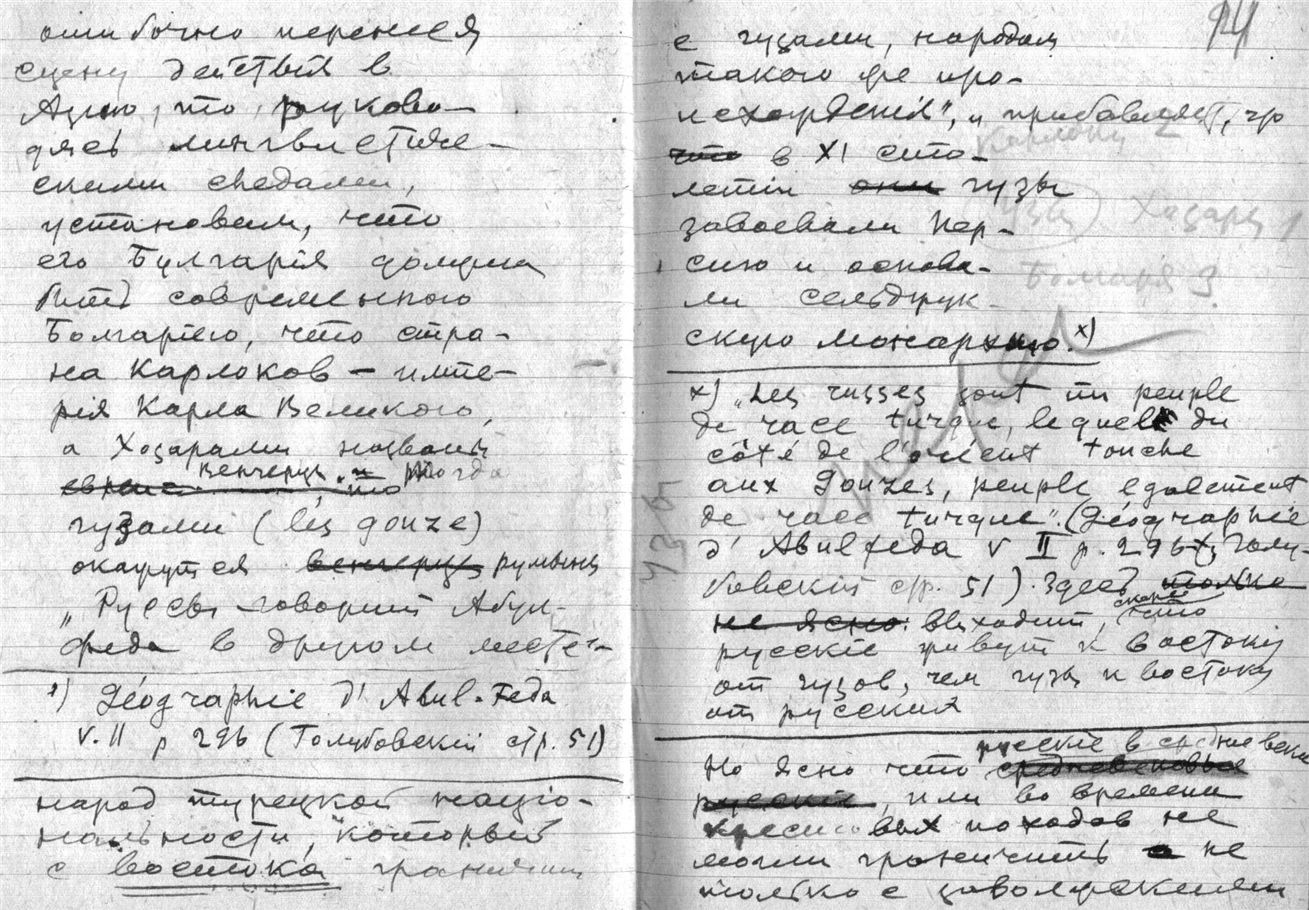 ошибочно перенеся
сцену действія в
Азию, что, руково-
дясь лингвистиче-
скими следами,
установим, что
его Булгарія должна
быть современною
Болгаріею, что стра-
на Карлоков — импе-
рія Карла Великого,
а Хозарами названы
венгерцы и тогда
гузами (les gouze)
окажутся венгерцы румыны
"Руссы говорит Абул-
феда в другом месте—
х) Géographie d'Abul-Feda
V. II p 296 (Голубовскій стр. 51)
народ турецкой націо-
нальности, который
с востока граничит
94
с гузами, народом
такого же про-
исхожденія", и прибавляет, что
что в XI сто-
летіи они гузы
завоевали Пер-
сию и основа-
ли сельджук-
скую монархию.х)
Карлоки 2
Гузы Хазары 1
Болгарія 3
х) "Les russes sont un peuple
de race turque, lequel du
côté de l'orient touche
aux Gouzes, peuple egalement
de race turque". (Géographie
d'Abulfeda V II p. 296 Голу-
бовскій стр. 51). Здесь только
не ясно: выходит, скорее что
русскіе живут к востоку
от гузов, чем гузы к востоку
от русских
русскіе в средние века
Но ясно что средневековые
русскіе, или во времени
крестовых походов не
могли граничить а не
только с заволжскими